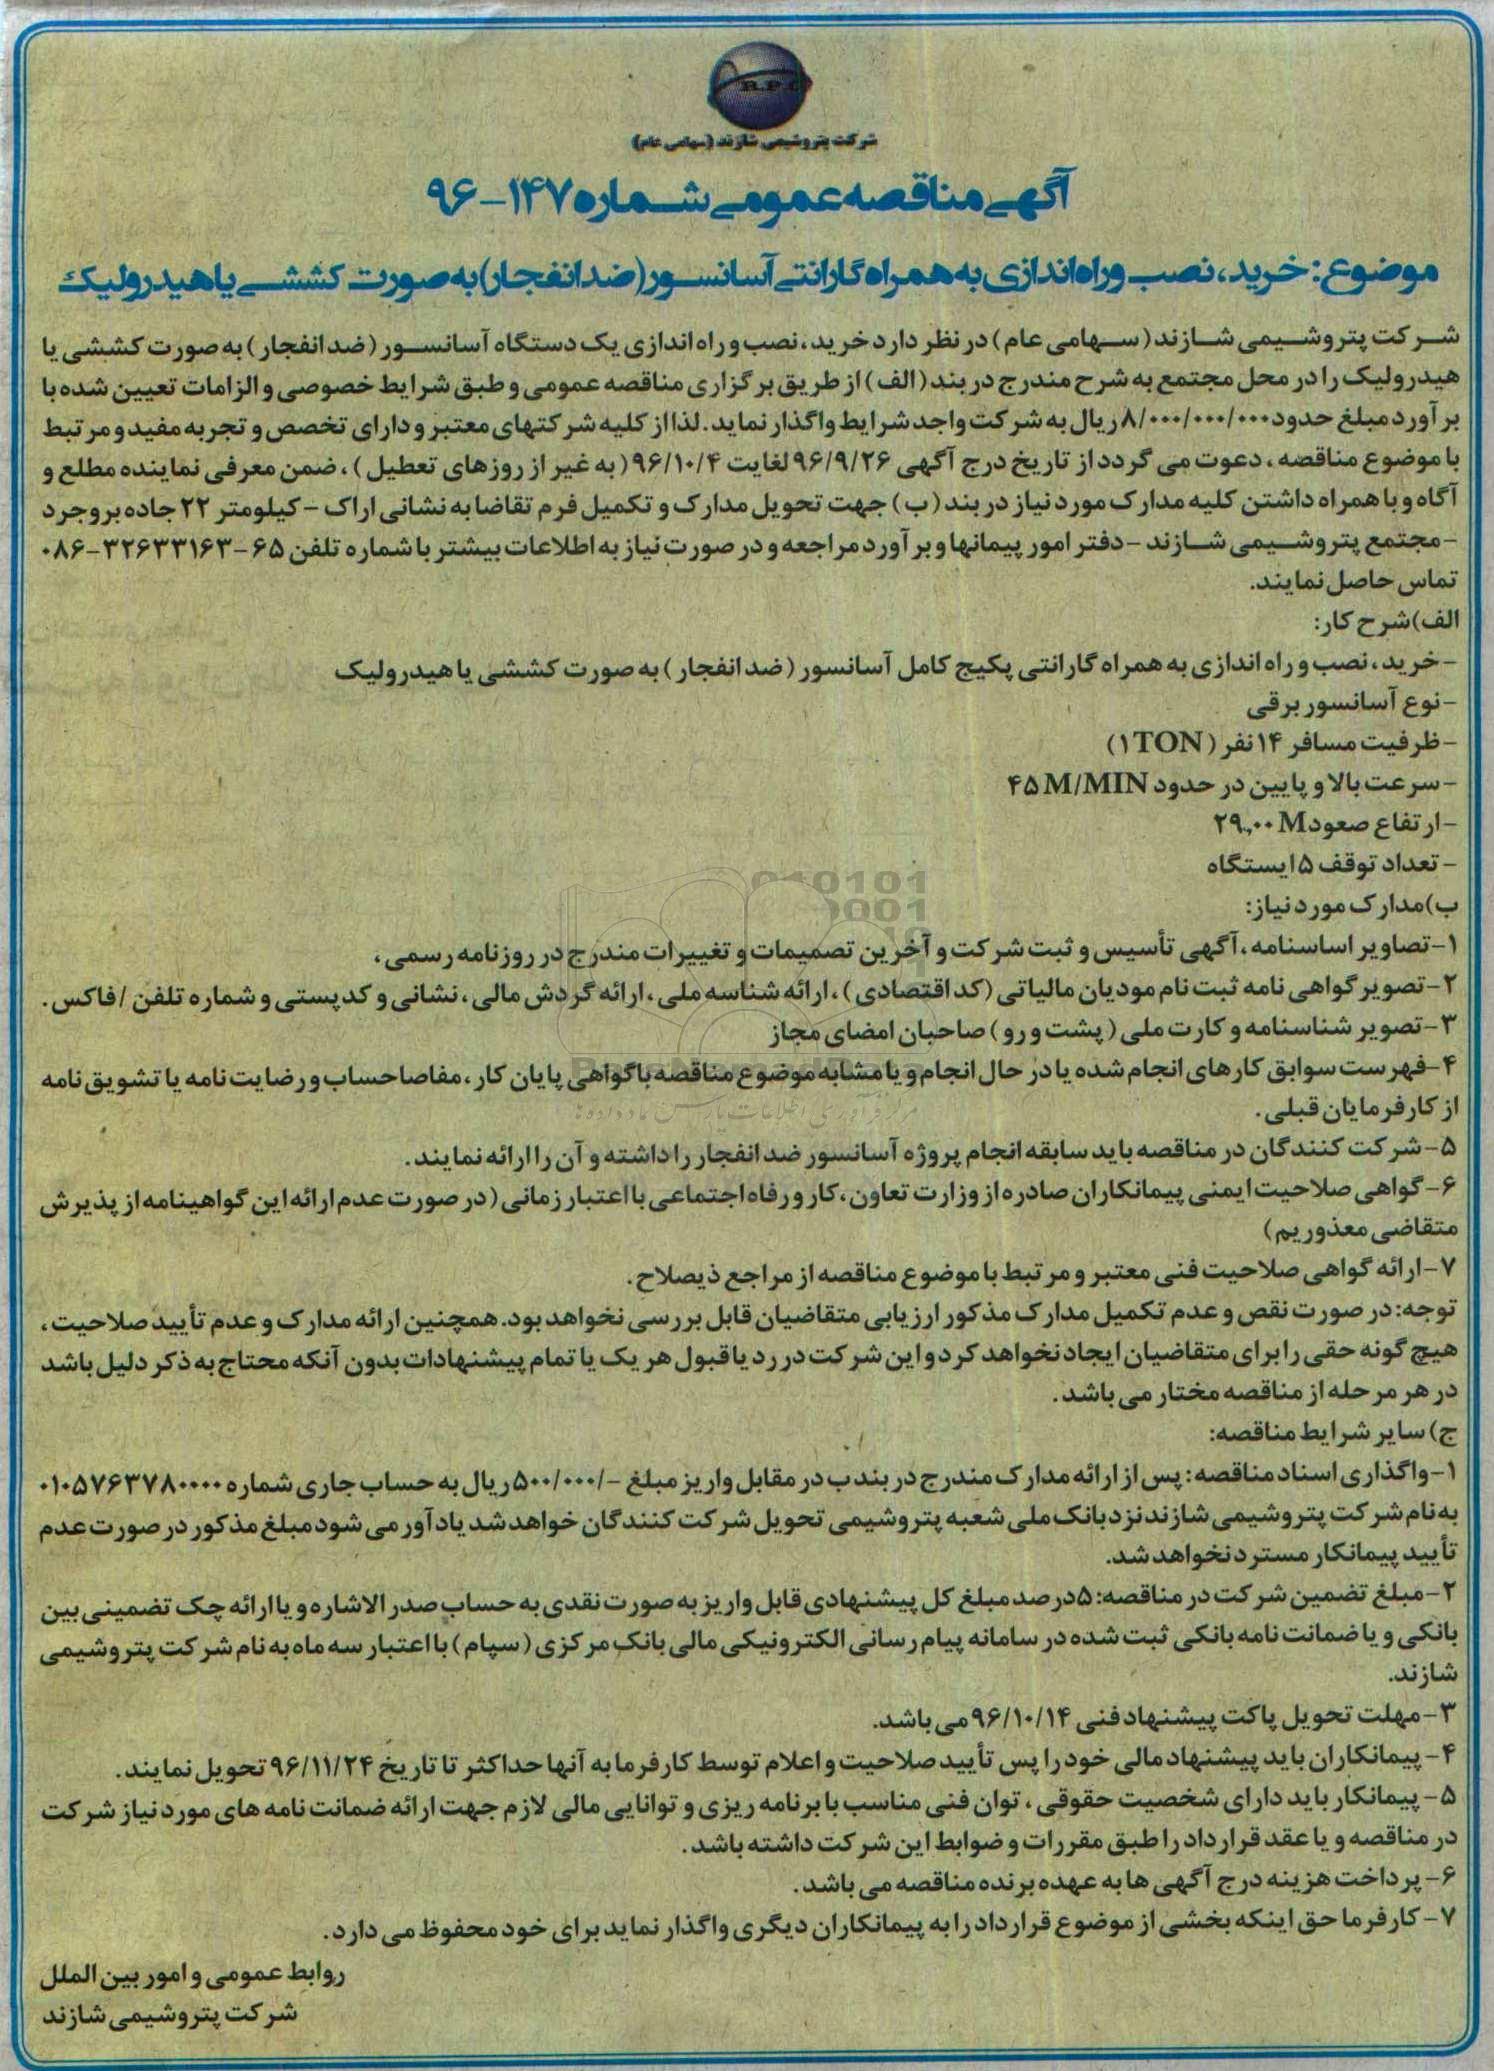 B.P.C
شرکت پتروشیمی شازند (سهامی عام)
آگهی مناقصه عمومی شماره ۱۴۷-۹۶
موضوع: خرید، نصب و راه‌اندازی به همراه گارانتی آسانسور (ضد انفجار) به صورت کششی یا هیدرولیک
شرکت پتروشیمی شازند (سهامی عام) در نظر دارد خرید، نصب و راه اندازی یک دستگاه آسانسور (ضد انفجار) به صورت کششی یا
هیدرولیک را در محل مجتمع به شرح مندرج در بند (الف) از طریق برگزاری مناقصه عمومی و طبق شرایط خصوصی و الزامات تعیین شده با
برآورد مبلغ حدود ۸/۰۰۰/۰۰۰/۰۰۰ ریال به شرکت واجد شرایط واگذار نماید. لذا از کلیه شرکتهای معتبر و دارای تخصص و تجربه مفید و مرتبط
با موضوع مناقصه، دعوت می گردد از تاریخ درج آگهی ۹۶/۹/۲۶ لغایت ۹۶/۱۰/۴ (به غیر از روزهای تعطیل)، ضمن معرفی نماینده مطلع و
آگاه و با همراه داشتن کلیه مدارک مورد نیاز در بند (ب) جهت تحویل مدارک و تکمیل فرم تقاضا به نشانی اراک - کیلومتر ۲۲ جاده بروجرد
- مجتمع پتروشیمی شازند - دفتر امور پیمانها و برآورد مراجعه و در صورت نیاز به اطلاعات بیشتر با شماره تلفن ۶۵-۳۲۶۳۳۱۶۳-۰۸۶
تماس حاصل نمایند.
الف) شرح کار:
- خرید، نصب و راه اندازی به همراه گارانتی پکیج کامل آسانسور (ضد انفجار) به صورت کششی یا هیدرولیک
- نوع آسانسور برقی
- ظرفیت مسافر ۱۴ نفر (۱TON)
- سرعت بالا و پایین در حدود ۴۵M/MIN
- ارتفاع صعود ۲۹,۰۰M
- تعداد توقف ۵ ایستگاه
ب) مدارک مورد نیاز:
۱- تصاویر اساسنامه، آگهی تأسیس و ثبت شرکت و آخرین تصمیمات و تغییرات مندرج در روزنامه رسمی،
۲- تصویر گواهی نامه ثبت نام مودیان مالیاتی (کد اقتصادی)، ارائه شناسه ملی، ارائه گردش مالی، نشانی و کدپستی و شماره تلفن / فاکس.
۳- تصویر شناسنامه و کارت ملی (پشت و رو) صاحبان امضای مجاز
۴- فهرست سوابق کارهای انجام شده یا در حال انجام و یا مشابه موضوع مناقصه با گواهی پایان کار، مفاصا حساب و رضایت نامه یا تشویق نامه
از کارفرمایان قبلی.
۵- شرکت کنندگان در مناقصه باید سابقه انجام پروژه آسانسور ضد انفجار را داشته و آن را ارائه نمایند.
۶- گواهی صلاحیت ایمنی پیمانکاران صادره از وزارت تعاون، کار و رفاه اجتماعی با اعتبار زمانی (در صورت عدم ارائه این گواهینامه از پذیرش
متقاضی معذوریم)
۷- ارائه گواهی صلاحیت فنی معتبر و مرتبط با موضوع مناقصه از مراجع ذیصلاح.
توجه: در صورت نقص و عدم تکمیل مدارک مذکور ارزیابی متقاضیان قابل بررسی نخواهد بود. همچنین ارائه مدارک و عدم تأیید صلاحیت،
هیچ گونه حقی را برای متقاضیان ایجاد نخواهد کرد و این شرکت در رد یا قبول هر یک یا تمام پیشنهادات بدون آنکه محتاج به ذکر دلیل باشد
در هر مرحله از مناقصه مختار می باشد.
ج) سایر شرایط مناقصه:
۱- واگذاری اسناد مناقصه: پس از ارائه مدارک مندرج در بند ب در مقابل واریز مبلغ -/۵۰۰/۰۰۰ ریال به حساب جاری شماره ۰۱۰۵۷۶۳۷۸۰۰۰۰
به نام شرکت پتروشیمی شازند نزد بانک ملی شعبه پتروشیمی تحویل شرکت کنندگان خواهد شد یادآور می شود مبلغ مذکور در صورت عدم
تأیید پیمانکار مسترد نخواهد شد.
۲- مبلغ تضمین شرکت در مناقصه: ۵ درصد مبلغ کل پیشنهادی قابل واریز به صورت نقدی به حساب صدرالاشاره و یا ارائه چک تضمینی بین
بانکی و یا ضمانت نامه بانکی ثبت شده در سامانه پیام رسانی الکترونیکی مالی بانک مرکزی (سپام) با اعتبار سه ماه به نام شرکت پتروشیمی
شازند.
۳- مهلت تحویل پاکت پیشنهاد فنی ۹۶/۱۰/۱۴ می باشد.
۴- پیمانکاران باید پیشنهاد مالی خود را پس تأیید صلاحیت و اعلام توسط کارفرما به آنها حداکثر تا تاریخ ۹۶/۱۱/۲۴ تحویل نمایند.
۵- پیمانکار باید دارای شخصیت حقوقی، توان فنی مناسب با برنامه ریزی و توانایی مالی لازم جهت ارائه ضمانت نامه های مورد نیاز شرکت
در مناقصه و یا عقد قرارداد را طبق مقررات و ضوابط این شرکت داشته باشد.
۶- پرداخت هزینه درج آگهی ها به عهده برنده مناقصه می باشد.
۷- کارفرما حق اینکه بخشی از موضوع قرارداد را به پیمانکاران دیگری واگذار نماید برای خود محفوظ می دارد.
روابط عمومی و امور بین الملل
شرکت پتروشیمی شازند